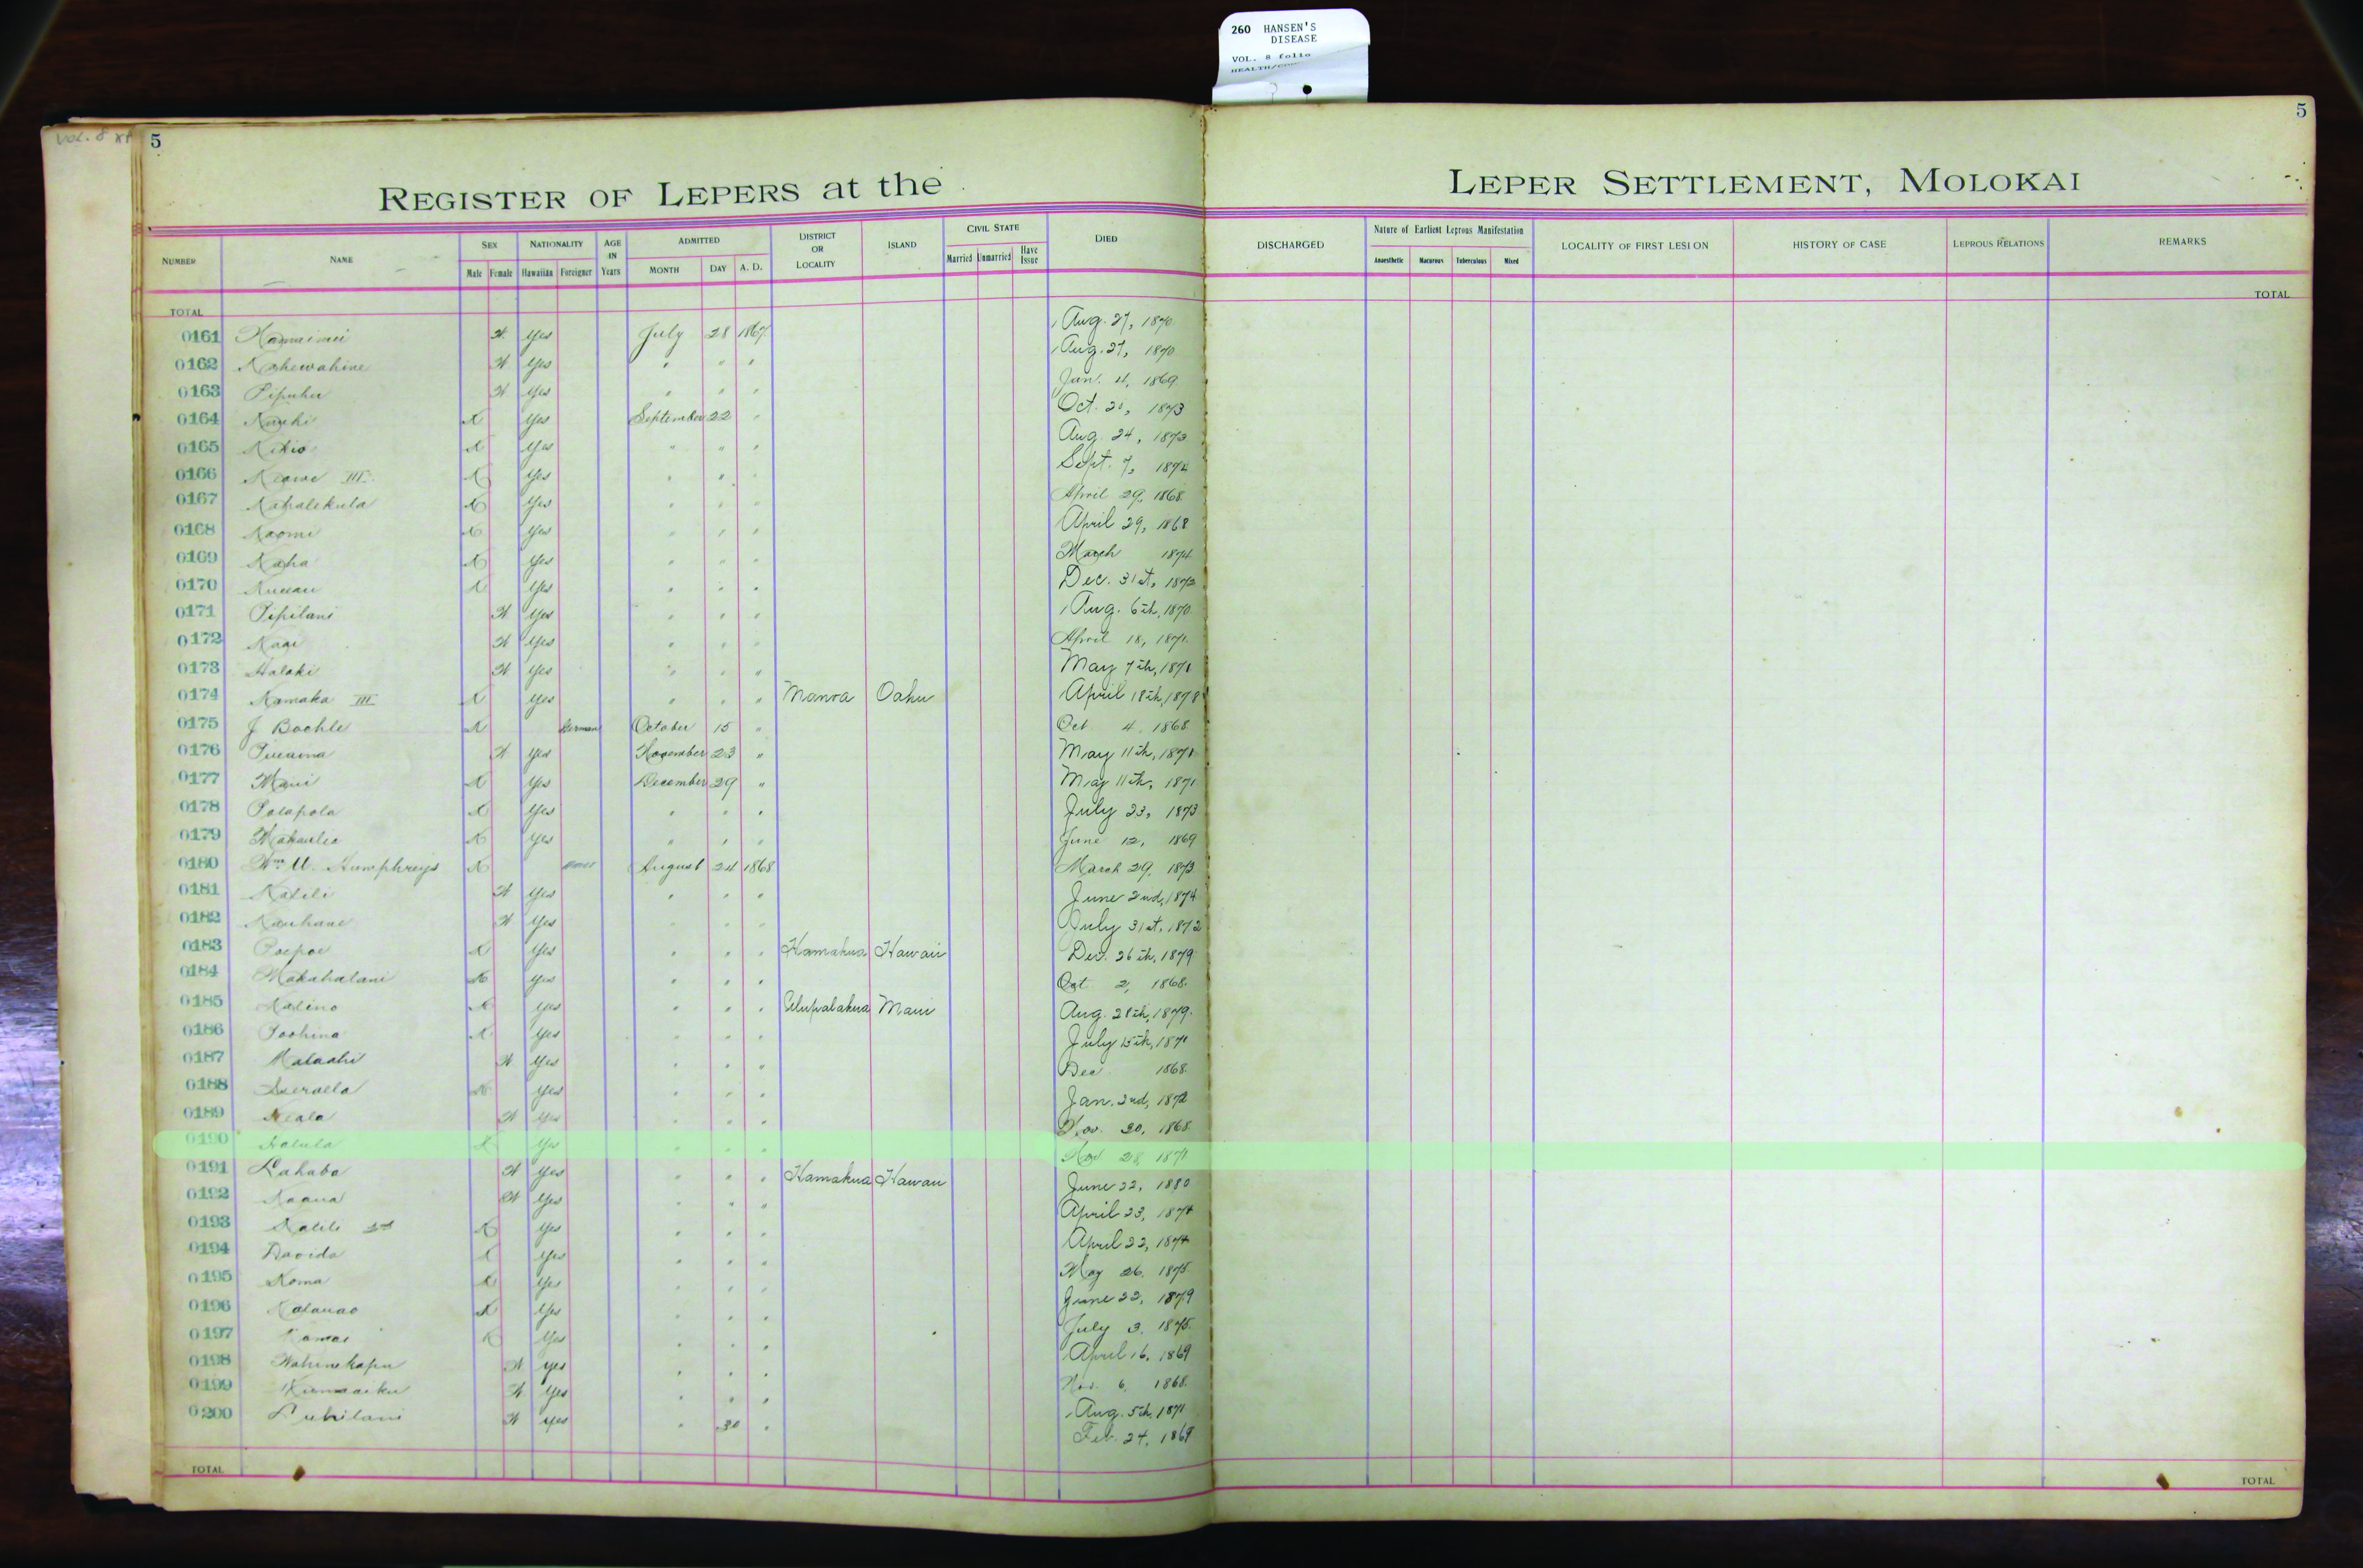 260 HANSEN'S
DISEASE
VOL. 8 folio
VOL. 8
5
5
REGISTER OF LEPERS at the LEPER SETTLEMENT, MOLOKAI
NUMBER NAME SEX Male Female NATIONALITY Hawaiian Foreigner AGE IN Years ADMITTED MONTH DAY A. D. DISTRICT OR LOCALITY ISLAND CIVIL STATE Married Unmarried Have Issue DIED DISCHARGED Nature of Earliest Leprous Manifestation Anaesthetic Macurous Tuberculous Mixed LOCALITY OF FIRST LESION HISTORY OF CASE LEPROUS RELATIONS REMARKS
TOTAL TOTAL
0161 W Yes July 28 1867 Aug. 27, 1870
0162 Kahewahine W Yes " " " Aug. 27, 1870
0163 Pipuhu W Yes " " " Jan. 4, 1869
0164 X Yes September 22 " Oct. 1873
0165 Kikio X Yes " " " Aug. 24, 1873
0166 Keawe III X Yes " " " Sept. 7, 1874
0167 Kahalekula X Yes " " " April 29, 1868
0168 Naomi X Yes " " " April 29, 1868
0169 Kaha X Yes " " " March 1874
0170 X Yes " " " Dec. 31st, 1873
0171 Pipilani W Yes " " " Aug. 6th, 1870
0172 W Yes " " " April 18, 1871
0173 Halaki W Yes " " " May 7th, 1871
0174 Kamaka III X Yes " " " Manoa Oahu April 18th, 1878
0175 J Boehle X German October 15 " Oct 4, 1868
0176 W Yes November 23 " May 11th, 1871
0177 Maui X Yes December 29 " May 11th, 1871
0178 Polapola X Yes " " " July 23, 1873
0179 X Yes " " " June 12, 1869
0180 Wm. Humphreys X August 24 1868 March 29, 1873
0181 Kalili W Yes " " " June 2nd, 1874
0182 Kauhane W Yes " " " July 31st, 1872
0183 Poepoe X Yes " " " Hamakua Hawaii Dec. 26th, 1879
0184 Makahalani X Yes " " " Oct 2, 1868
0185 Kalino X Yes " " " Ulupalakua Maui Aug. 28th, 1879
0186 Poohina X Yes " " " July 15th, 1871
0187 Malaahi W Yes " " " Dec 1868
0188 X Yes " " " Jan. 2nd, 1872
0189 Keala W Yes " " " Nov. 30, 1868
0190 Halula X Yes " " " Nov 28, 1871
0191 Lahaba W Yes " " " Hamakua Hawaii June 22, 1880
0192 Kaaua W Yes " " " April 23, 1874
0193 Kalili 2nd X Yes " " " April 22, 1874
0194 Davida X Yes " " " May 26, 1875
0195 Koma X Yes " " " June 22, 1879
0196 Kalauao X Yes " " " July 3, 1875
0197 Kamai X Yes " " " April 16, 1869
0198 Wahinekapu W Yes " " " Nov. 6, 1868
0199 W Yes " " " Aug. 5th, 1871
0200 Luhilani W Yes " 30 " Feb. 24, 1869
TOTAL TOTAL